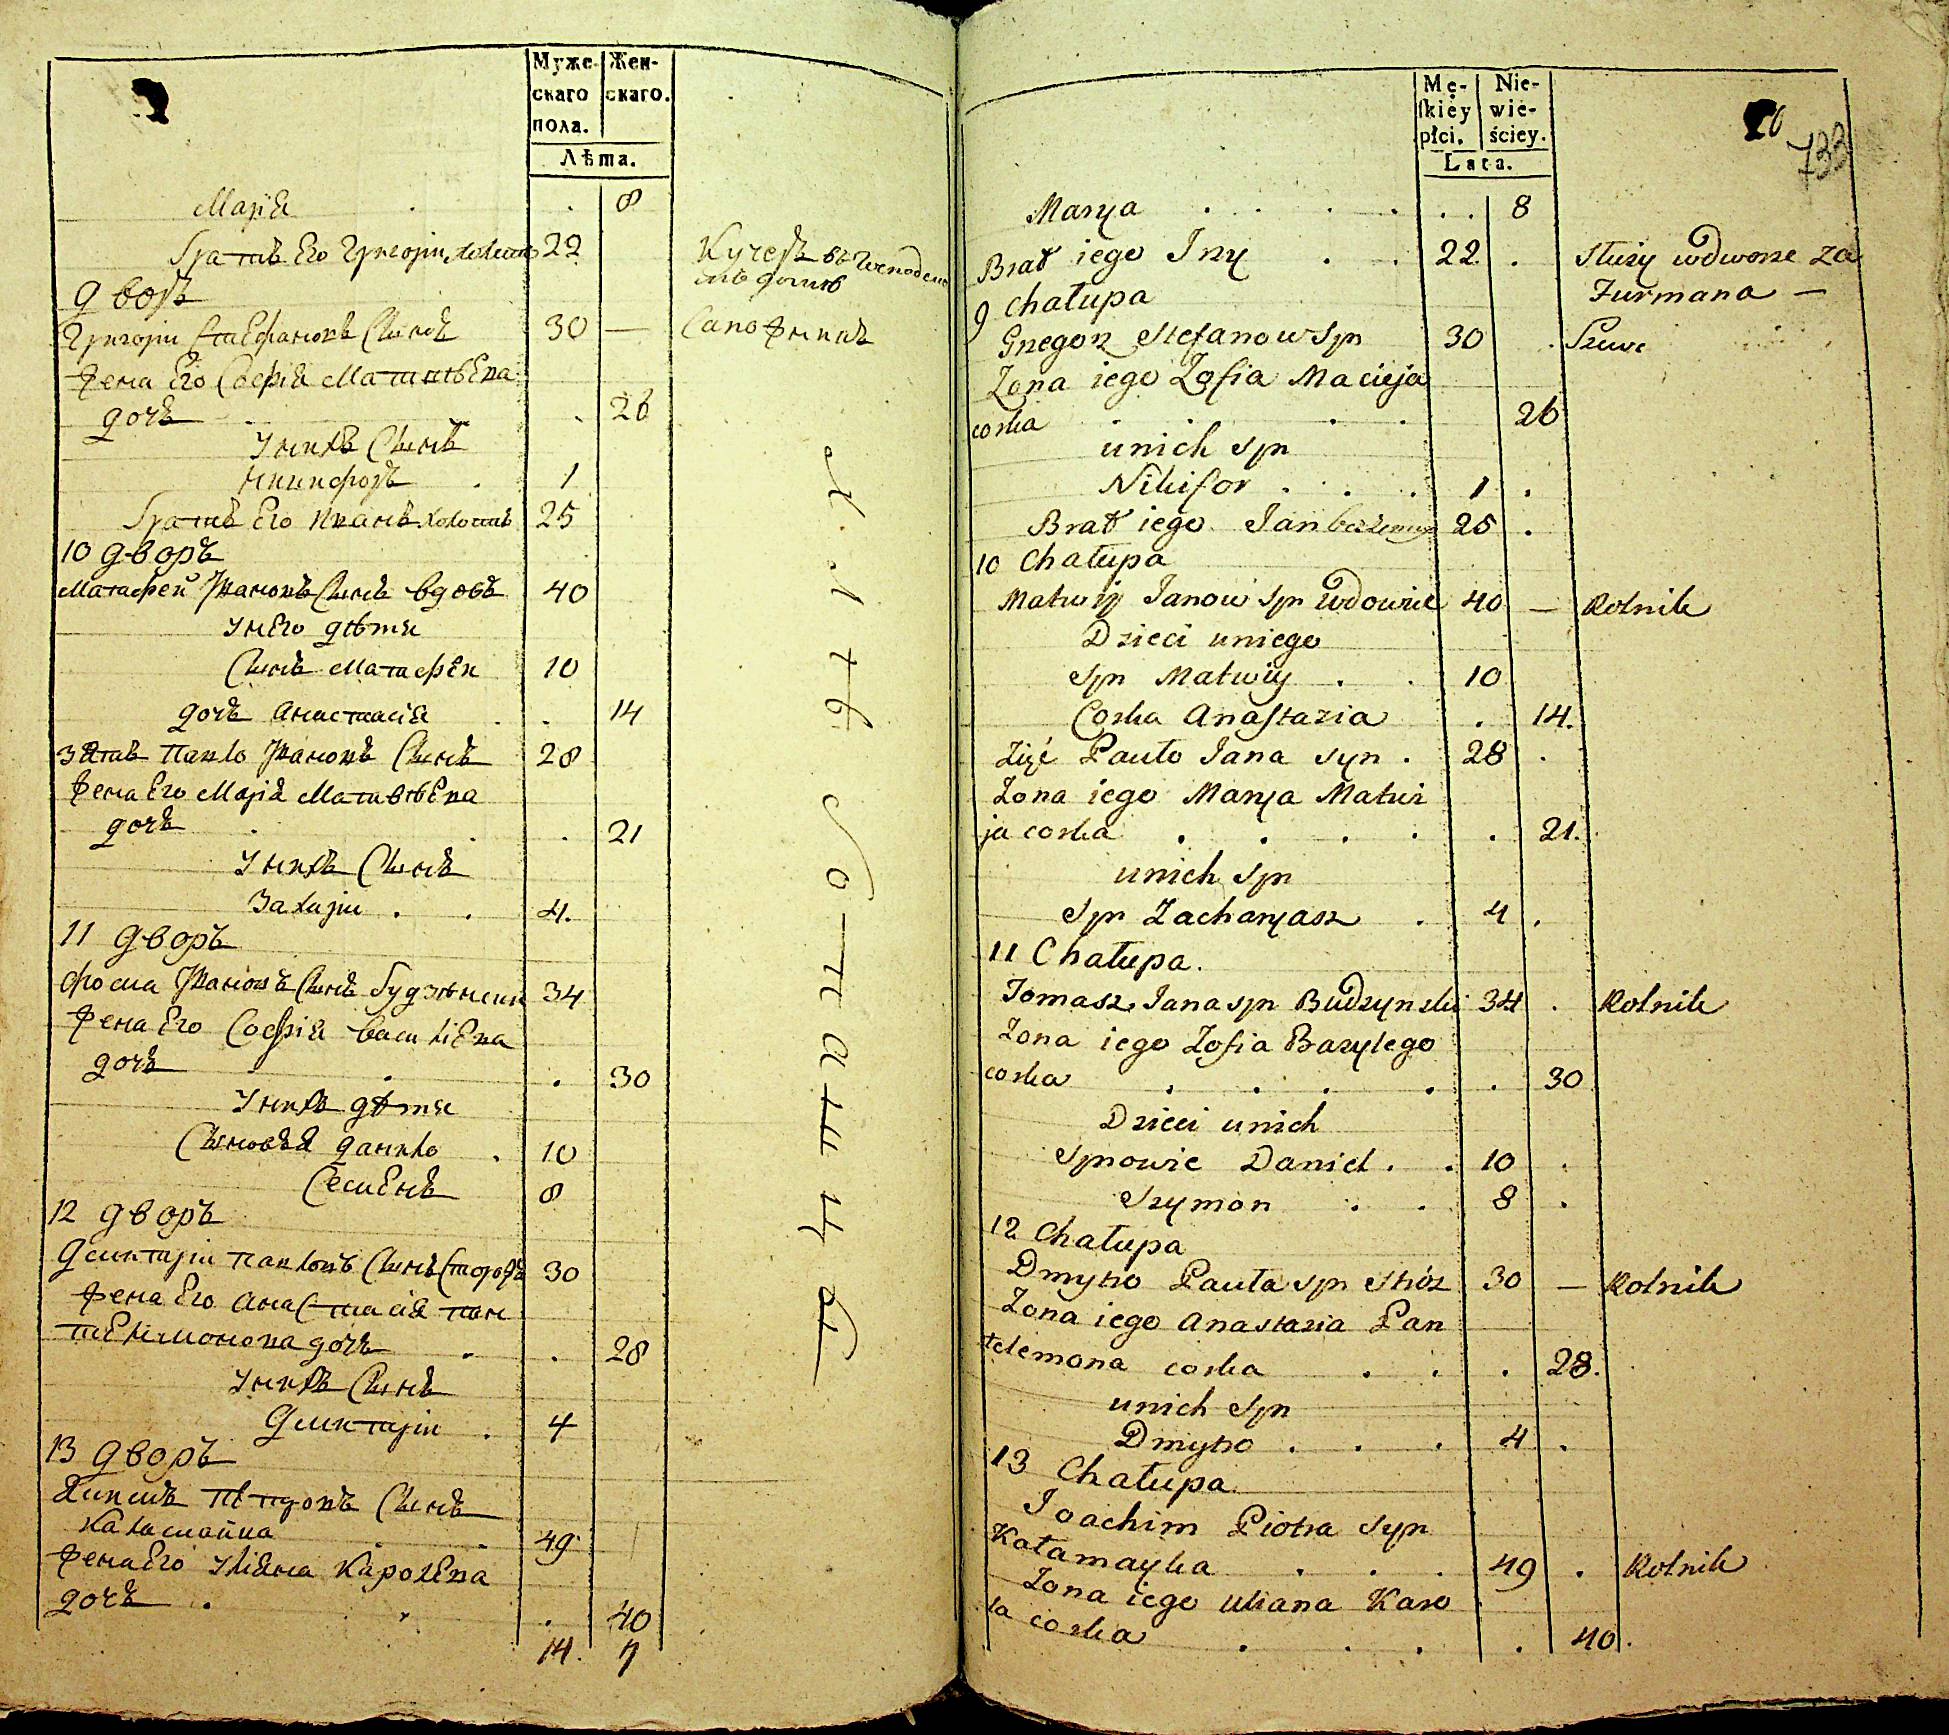 Муже-
скаго
пола.
Жен-
скаго.
Лѣта.
Марія . . 8
братъ Его Григорій холостъ 22
Кучеръ въ господск
мъ домѣ
9 воръ
Григорій Стефановъ Сынъ 30 —
Сапожникъ
Жена Его Софія Матвѣева
дочь . 26
Унихъ Сынъ
Никифоръ . 1
братъ Его Иванъ холостъ 25
10 дворъ
Матфей Ивановъ Сынъ вдовъ 40
Унего дѣти
Сынъ Матфей 10
дочь Анастасія . . 14
Зять Павло Ивановъ Сынъ 28
Жена Его Марія Матвѣева
дочь . . . 21
Унихъ Сынъ
Захарій . . 4.
11 дворъ
Фома Ивановъ Сынъ будзинскій 34
Жена Его Софія Василіева
дочь . . . 30
Унихъ дѣти
Сыновья Данило . 10
Семенъ 8
12 дворъ
Димитрій Павловъ Сынъ Сторожъ 30
Жена Его Анастасія Пан
телимонова дочь . . 28
Унихъ Сынъ
Димитрій . 4
13 дворъ
Якимъ Петровъ Сынъ
Каламайка 49
Жена Его Уліяна Каролева
дочь . . . 40
14. 7
Mę-
ſkiey
płci.
Nie-
wie-
ściey.
Lata.
733
Marya . . . . . . 8
Brat iego Jrzy . . 22 .
Służy wdworze za
Furmana —
9 chałupa
Grzegorz Stefanow Syn 30 . Szewc
Zona iego Zofia Macieja
corka . . . . 26
unich syn
Nikifor . . . 1 .
Brat iego Jan bezżenny 25 .
10 Chałupa
Matwiy Janow Syn wdowiec 40 — Rolnik
Dzieci uniego
Syn Matwiy . . 10
Corka Anastazia . 14.
Zięć Pawło Jana syn . 28 .
Zona iego Marya Matwi
ja corka . . . . . 21.
unich Syn
Syn Zacharyasz . 4 .
11 Chałupa.
Tomasz Jana syn Budzynski 34 . Rolnik
Zona iego Zofia Bazylego
corka . . . . . 30
Dzieci unich
Synowie Daniel . . 10 .
Szymon . . 8 .
12 Chałupa
Dmytro Pawła syn Stróż 30 — Rolnik
Zona iego Anastazia Pan
telemona corka . . . 28.
unich Syn
Dmytro . . . 4 .
13 Chałupa
Joachim Piotra Syn
Kałamayka . . . 49 . Rolnik
Zona iego Uliana Karo
la corka . . . . 40.